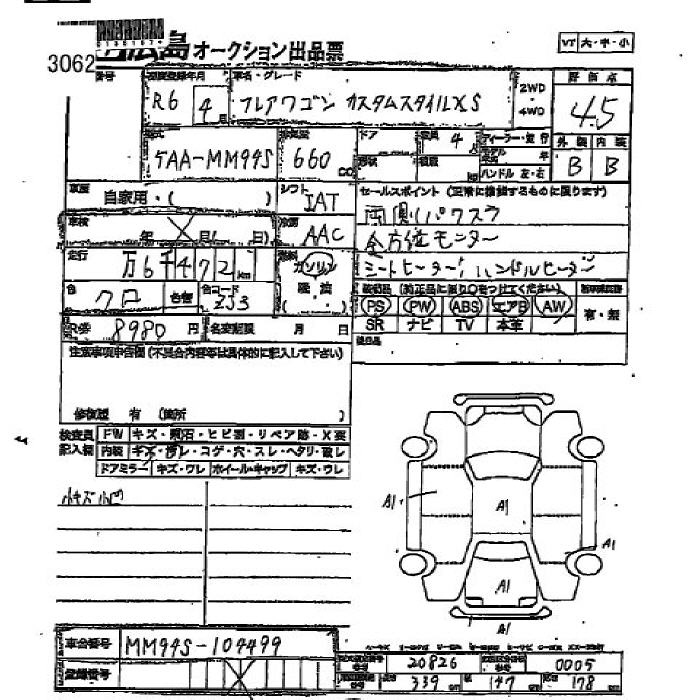 3062
広島オークション出品票
VT 大・中・小
番号
初度登録年月
車名・グレード
2WD
・
4WD
評価点
R6 4月
フレアワゴン カスタムスタイルXS
4.5
型式
排気量
ドア
定員 4人
ディーラー・並行
外装 内装
5AA-MM94S
660 CC
形状
積載 kg
モデル 年
ハンドル 左・右
B B
車歴
自家用・( )
シフト
IAT
セールスポイント (正常に機能するものに限ります)
車検
年 月( 日)
冷房
AAC
両側パワスラ
全方位モニター
シートヒーター、ハンドルヒーター
走行
万6千472km
燃料
ガソリン
軽油
(・)
色
クロ
色替
色コード
ZJ3
装備品 (純正品に限り○をつけてください)
PS PW ABS エアB AW
SR ナビ TV 本革
有・無
R券 8980 円
名変期限 月 日
後日品
注意事項申告欄 (不具合内容等は具体的に記入して下さい)
修復歴 有 (箇所 )
検査員
記入欄
FW キズ・飛石・ヒビ割・リペア跡・X要
内装 キズ・汚レ・コゲ・穴・スレ・ヘタリ・破レ
ドアミラー キズ・ワレ ホイール・キャップ キズ・ワレ
小キズ小凹
A1
A1
A1
A1
A1
車台番号 MM94S-109499
登録番号
20826
0005
長さ 339 cm 幅 147 cm 高さ 178 cm